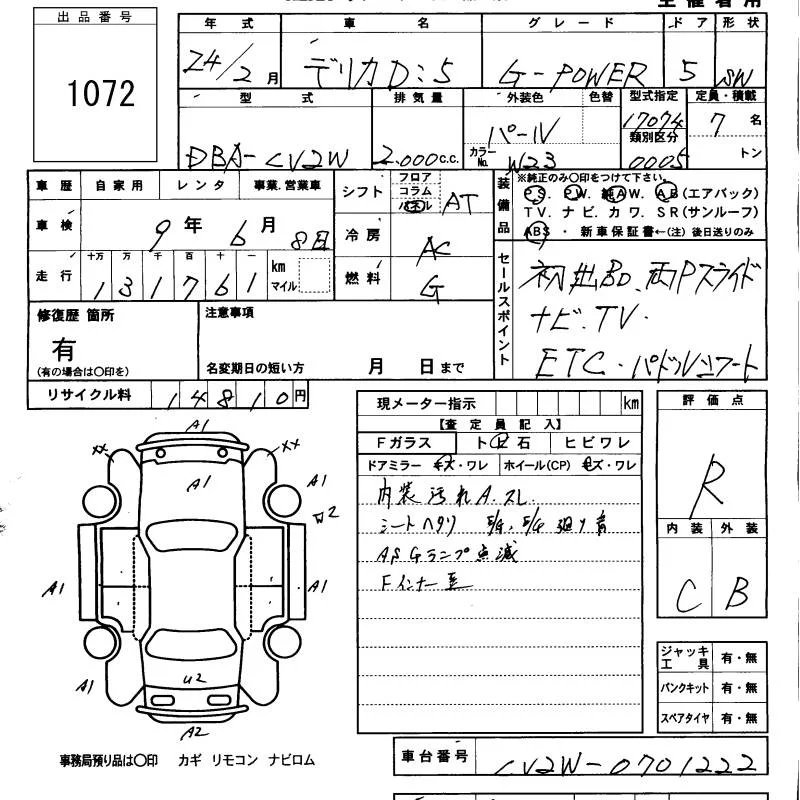 出品番号
1072
年式 車名 グレード ドア 形状
24/2月 デリカD:5 G-POWER 5 SW
型式 排気量 外装色 色替 型式指定 定員・積載
DBA-CV2W 2.000c.c. パール 17074 7名
カラーNo. W23 類別区分 0005 トン
車歴 自家用 レンタ 事業.営業車
シフト フロア コラム パネル AT
車検 9年6月8日
冷房 AC
走行 十万 万 千 百 十 一
131761 km マイル
燃料 G
装備品 ※純正のみ〇印をつけて下さい。
PS. PW. 純AW. AB(エアバック)
TV. ナビ. カワ. SR(サンルーフ)
ABS・新車保証書←(注)後日送りのみ
セールスポイント
両Pスライド
ナビ.TV.
ETC.パドルシフト
修復歴 箇所
有
(有の場合は〇印を)
注意事項
名変期日の短い方 月 日まで
リサイクル料 14810円
現メーター指示 km
【査定員記入】
Fガラス ト石 ヒビワレ
ドアミラー キズ・ワレ ホイール(CP) キズ・ワレ
内装汚れA.スレ
シートヘタリ
ASGランプ点滅
Fインナー
評価点
R
内装 外装
C B
A1
XX XX
A1 A1
W2
A1 A1
A1 A1
U2
A2
ジャッキ工具 有・無
パンクキット 有・無
スペアタイヤ 有・無
事務局預り品は〇印 カギ リモコン ナビロム
車台番号 CV2W-0701222